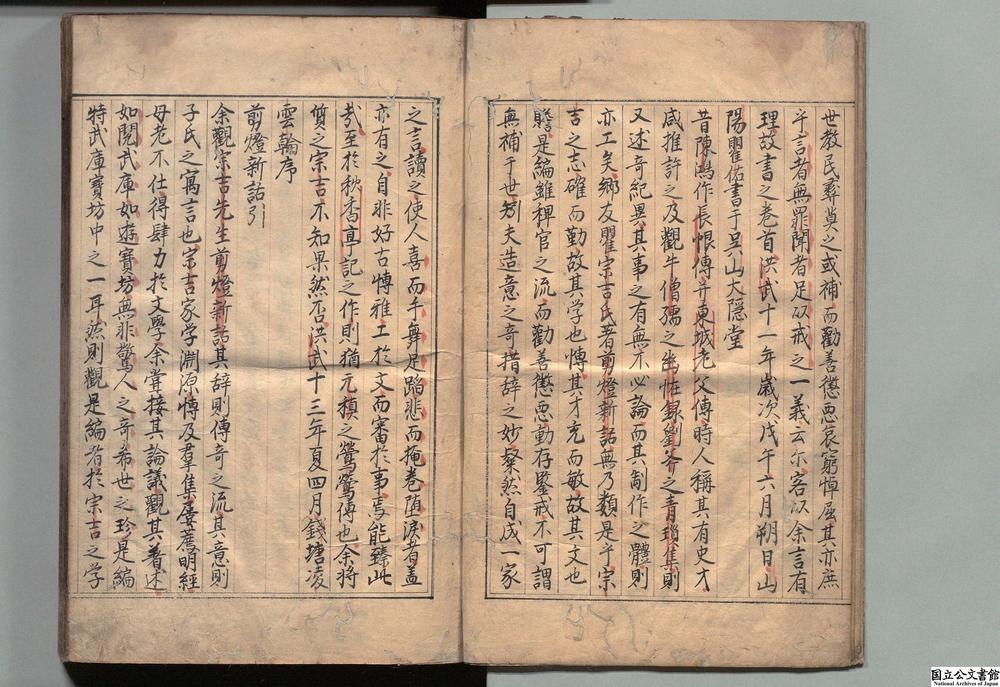 世教民彝莫之或補而勸善懲惡哀窮悼屈其亦庶
乎言者無罪聞者足以戒之一義云尔客以余言有
理故書之卷首洪武十一年歲次戊午六月朔日山
陽瞿佑書于吴山大隱堂
昔陳鴻作長恨傳并東城老父傳時人稱其有史才
咸推許之及觀牛僧孺之幽恠録劉斧之青瑣集則
又述奇紀異其事之有無不必論而其制作之體則
亦工矣鄉友瞿宗吉氏著剪燈新話無乃類是乎宗
吉之志確而勤故其学也愽其才充而敏故其文也
贍是編雖稗官之流而勸善懲惡動存鑒戒不可謂
無補于世矧夫造意之奇措辞之妙粲然自成一家
之言讀之使人喜而手舞足蹈悲而掩卷堕淚者盖
亦有之自非好古愽雅工於文而審於事曷能臻此
㦲至於秋香亭記之作則猶元稹之鶯鶯傳也余将
質之宗吉不知果然否洪武十三年夏四月錢塘凌
雲翰序
剪燈新話引
余觀宗吉先生剪燈新話其辞則傳奇之流其意則
子氏之寓言也宗吉家学淵源愽及羣集屢薦明經
母老不仕得肆力於文學余嘗接其論議觀其著述
如開武庫如遊寳坊無非驚人之奇希世之珍是編
特武庫寳坊中之一耳然則觀是編者於宗吉之学
国立公文書館
National Archives of Japan